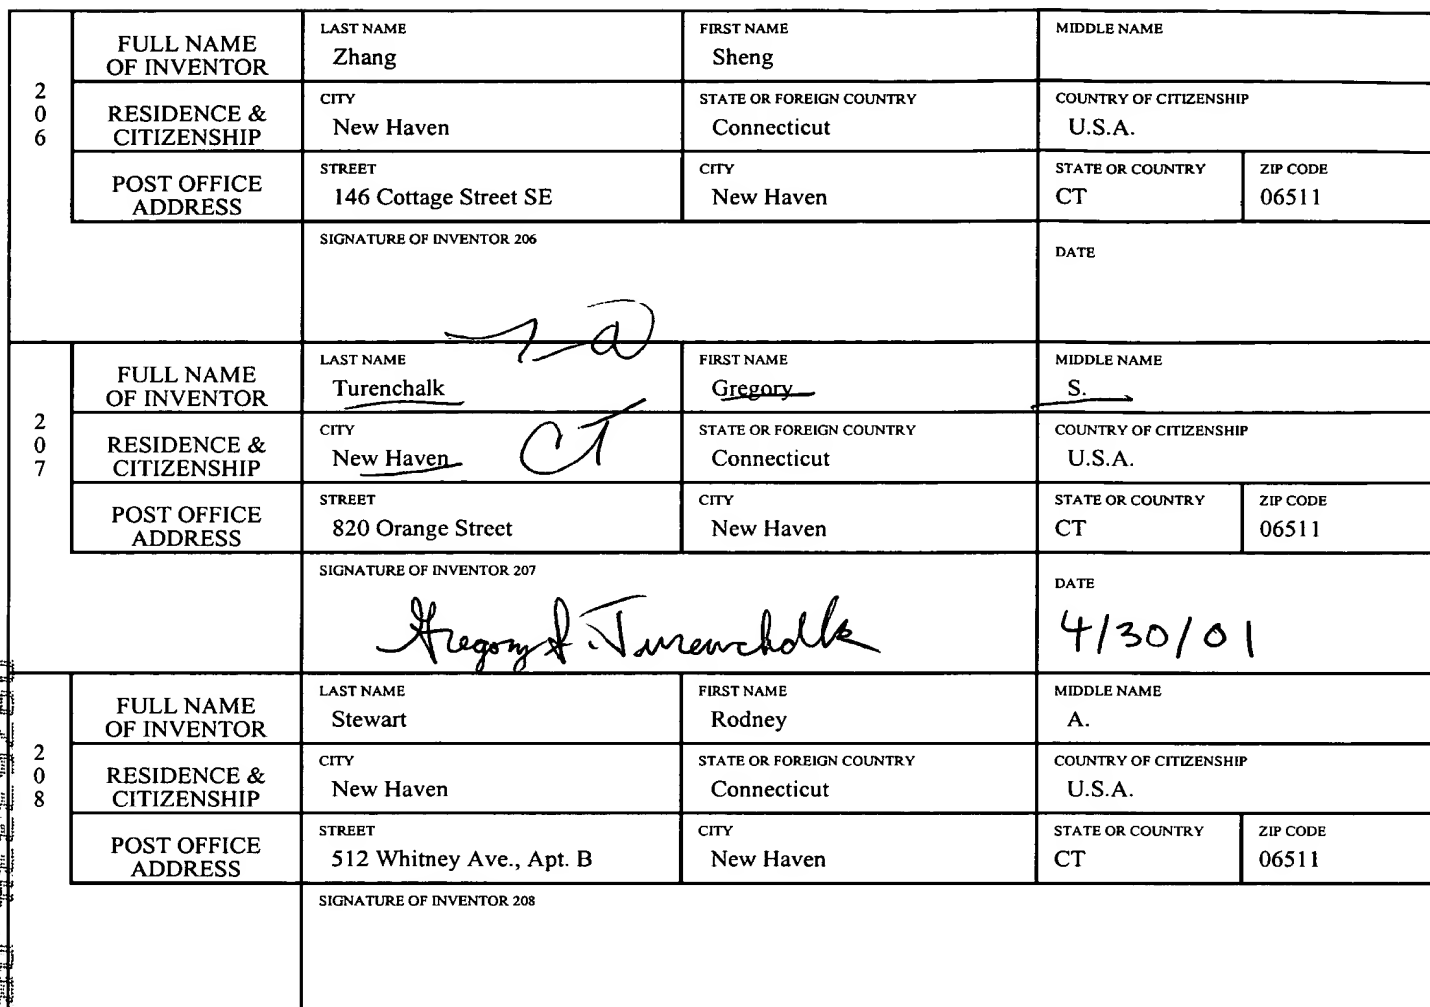 206
FULL NAME OF INVENTOR
LAST NAME
Zhang
FIRST NAME
Sheng
MIDDLE NAME
RESIDENCE & CITIZENSHIP
CITY
New Haven
STATE OR FOREIGN COUNTRY
Connecticut
COUNTRY OF CITIZENSHIP
U.S.A.
POST OFFICE ADDRESS
STREET
146 Cottage Street SE
CITY
New Haven
STATE OR COUNTRY
CT
ZIP CODE
06511
SIGNATURE OF INVENTOR 206
DATE
207
FULL NAME OF INVENTOR
LAST NAME
Turenchalk
FIRST NAME
Gregory
MIDDLE NAME
S.
RESIDENCE & CITIZENSHIP
CITY
New Haven
CT
STATE OR FOREIGN COUNTRY
Connecticut
COUNTRY OF CITIZENSHIP
U.S.A.
POST OFFICE ADDRESS
STREET
820 Orange Street
CITY
New Haven
STATE OR COUNTRY
CT
ZIP CODE
06511
SIGNATURE OF INVENTOR 207
Gregory S. Turenchalk
DATE
4/30/01
208
FULL NAME OF INVENTOR
LAST NAME
Stewart
FIRST NAME
Rodney
MIDDLE NAME
A.
RESIDENCE & CITIZENSHIP
CITY
New Haven
STATE OR FOREIGN COUNTRY
Connecticut
COUNTRY OF CITIZENSHIP
U.S.A.
POST OFFICE ADDRESS
STREET
512 Whitney Ave., Apt. B
CITY
New Haven
STATE OR COUNTRY
CT
ZIP CODE
06511
SIGNATURE OF INVENTOR 208